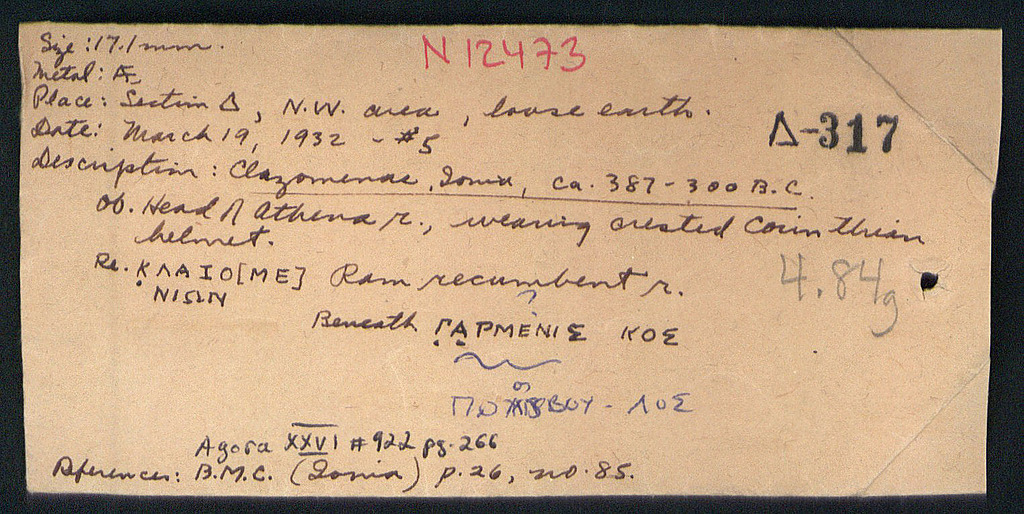 Size: 17.1 mm.
N 12473
Metal: Æ
Place: Section Δ, N.W. area, loose earth.
Date: March 19, 1932 - #5
Δ-317
Description: Clazomenae, Ionia, ca. 387-300 B.C.
Ob. Head of Athena r., wearing crested Corinthian
helmet.
Re. ΚΛΑΙΟ[ΜΕ] Ram recumbent r.
ΝΙΩΝ
4.84g
?
Beneath ΓΑΡΜΕΝΙΣ ΚΟΣ
or
ΒΟΥ - ΛΟΣ
Agora XXVI #922 pg. 266
References: B.M.C. (Ionia) p. 26, no. 85.